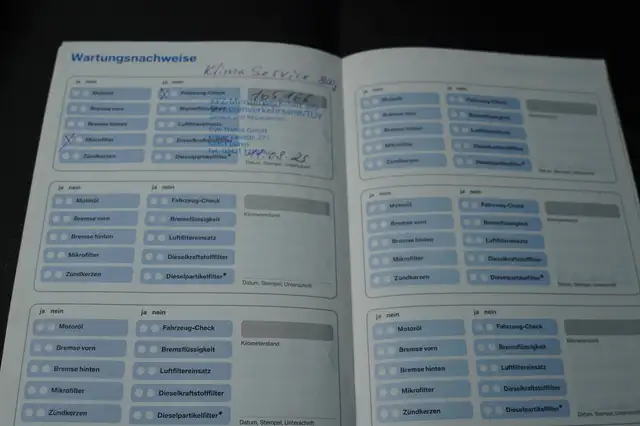 Wartungsnachweise
Klima Service
ja nein ja nein
Motoröl Fahrzeug-Check
Bremse vorn Bremsflüssigkeit
Bremse hinten Luftfiltereinsatz
Mikrofilter Dieselkraftstofffilter
Zündkerzen Dieselpartikelfilter*
Datum, Stempel, Unterschrift
ja nein ja nein
Motoröl Fahrzeug-Check
Bremse vorn Bremsflüssigkeit
Kilometerstand
Bremse hinten Luftfiltereinsatz
Mikrofilter Dieselkraftstofffilter
Zündkerzen Dieselpartikelfilter*
Datum, Stempel, Unterschrift
ja nein ja nein
Motoröl Fahrzeug-Check
Kilometerstand
Bremse vorn Bremsflüssigkeit
Bremse hinten Luftfiltereinsatz
Mikrofilter Dieselkraftstofffilter
Zündkerzen Dieselpartikelfilter*
Datum, Stempel, Unterschrift
ja nein ja nein
Motoröl Fahrzeug-Check
Bremse vorn Bremsflüssigkeit
Kilometerstand
Bremse hinten Luftfiltereinsatz
Mikrofilter Dieselkraftstofffilter
Zündkerzen Dieselpartikelfilter*
Datum, Stempel, Unterschrift
ja nein ja nein
Motoröl Fahrzeug-Check
Bremse vorn Bremsflüssigkeit
Kilometerstand
Bremse hinten Luftfiltereinsatz
Mikrofilter Dieselkraftstofffilter
Zündkerzen Dieselpartikelfilter*
Datum, Stempel, Unterschrift
ja nein ja nein
Motoröl Fahrzeug-Check
Bremse vorn Bremsflüssigkeit
Kilometerstand
Bremse hinten Luftfiltereinsatz
Mikrofilter Dieselkraftstofffilter
Zündkerzen Dieselpartikelfilter*
Datum, Stempel, Unterschrift